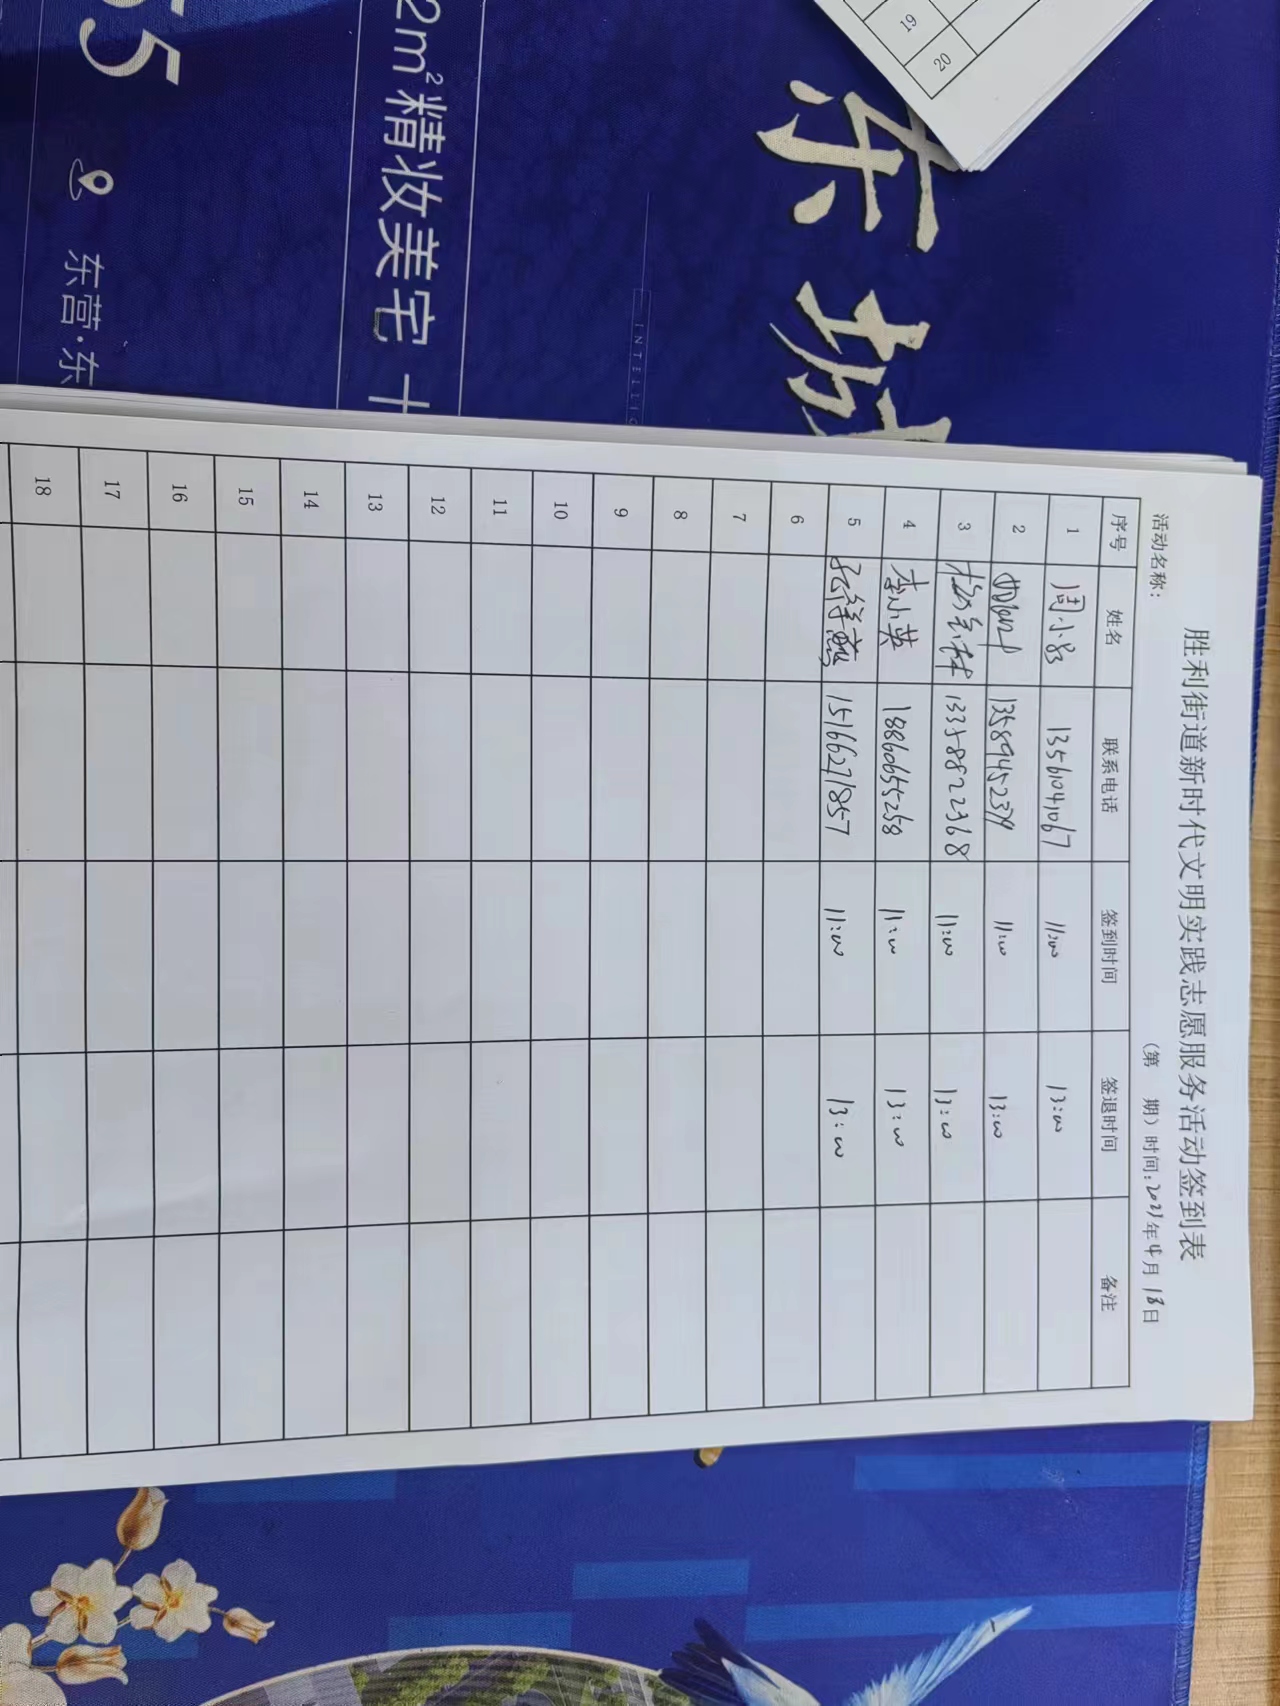 胜利街道新时代文明实践志愿服务活动签到表
活动名称： （第 期）时间：2021年4月18日
序号 姓名 联系电话 签到时间 签退时间 备注
1 周小 13561041067 11:00 13:00
2 13589452379 11:00 13:00
3 13358822368 11:00 13:00
4 李小英 18860655258 11:00 13:00
5 15166271857 11:00 13:00
6
7
8
9
10
11
12
13
14
15
16
17
18
19
20
55
2m²精妆美宅 十
东营·东
东
INTELLIG